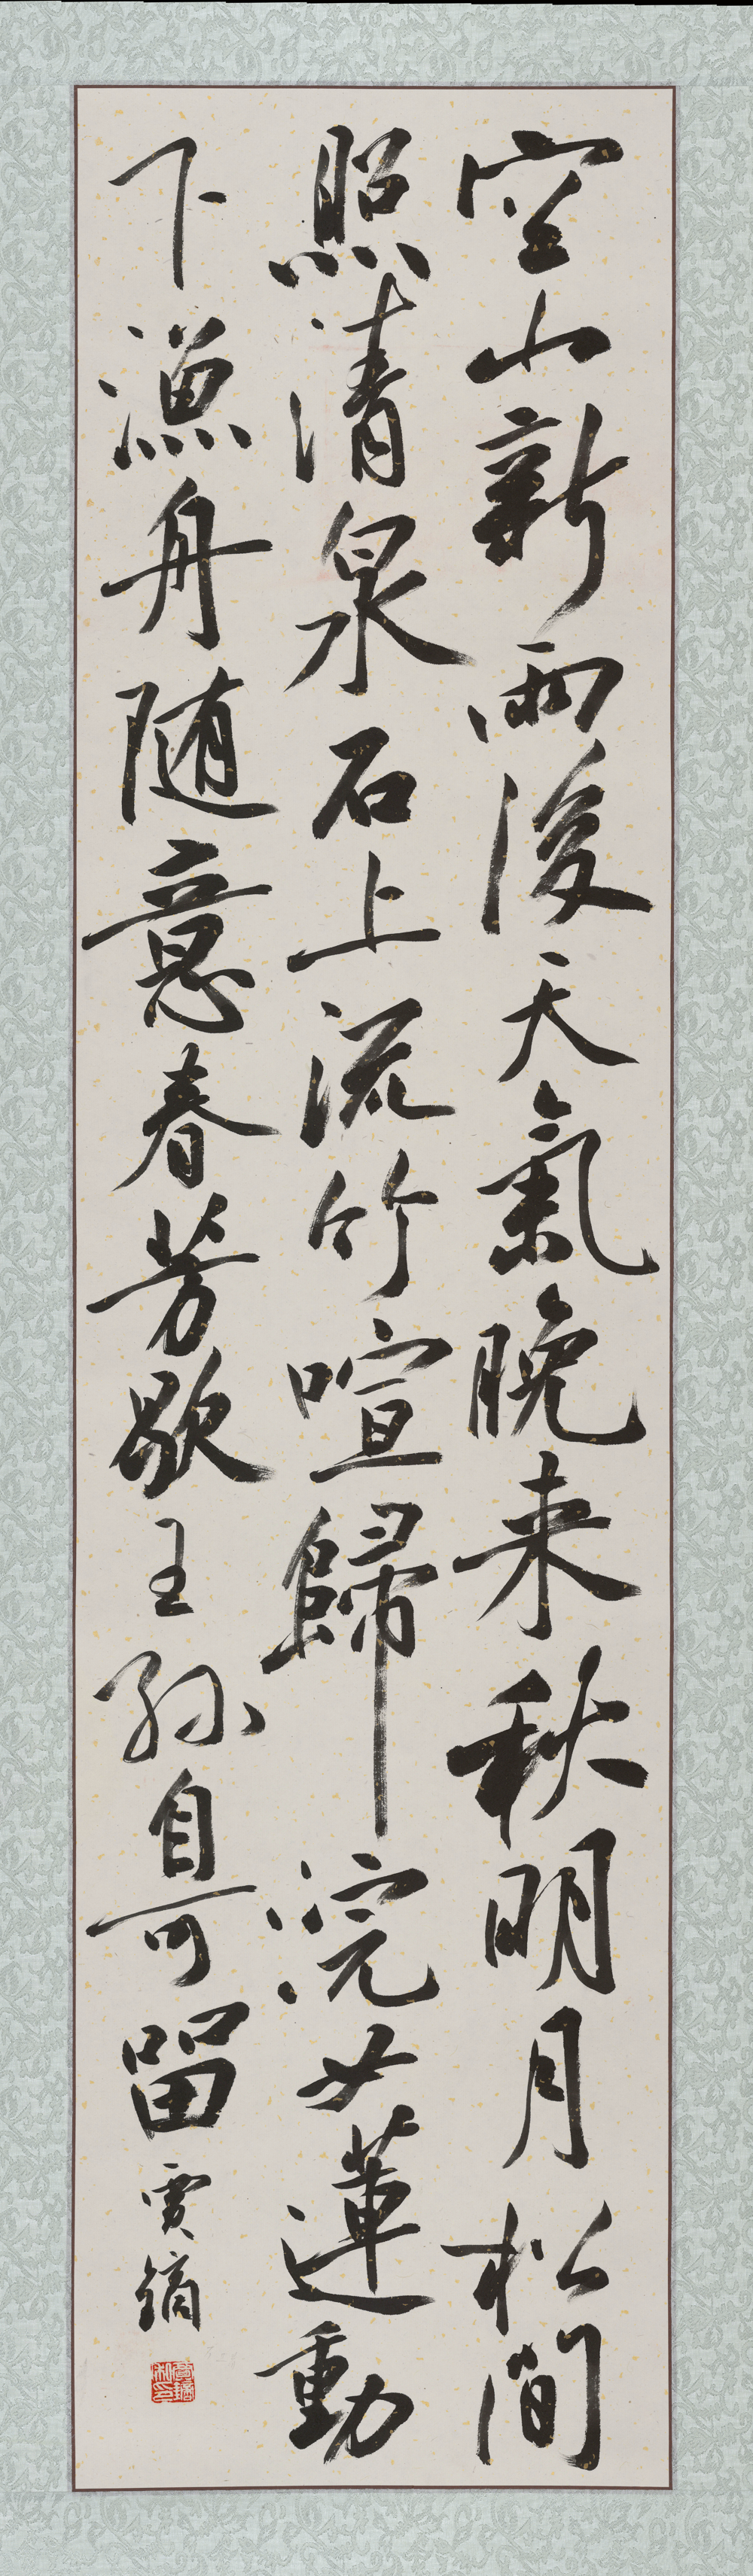 空山新雨後天氣晚来秋明月松間
照清泉石上流竹喧歸浣女蓮動
下漁舟随意春芳歇王孫自可留
賈鏑